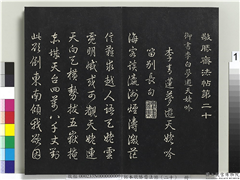 敬勝齋法帖第二十
御書李白夢遊天姥吟
李青蓮夢遊天姥吟
留別長句
海客談瀛洲煙濤微茫
信難求越人語天姥雲
霓明滅或可覩天姥連
天向天橫勢拔五嶽掩
赤城天台四萬八千丈對
此欲倒東南傾我欲因